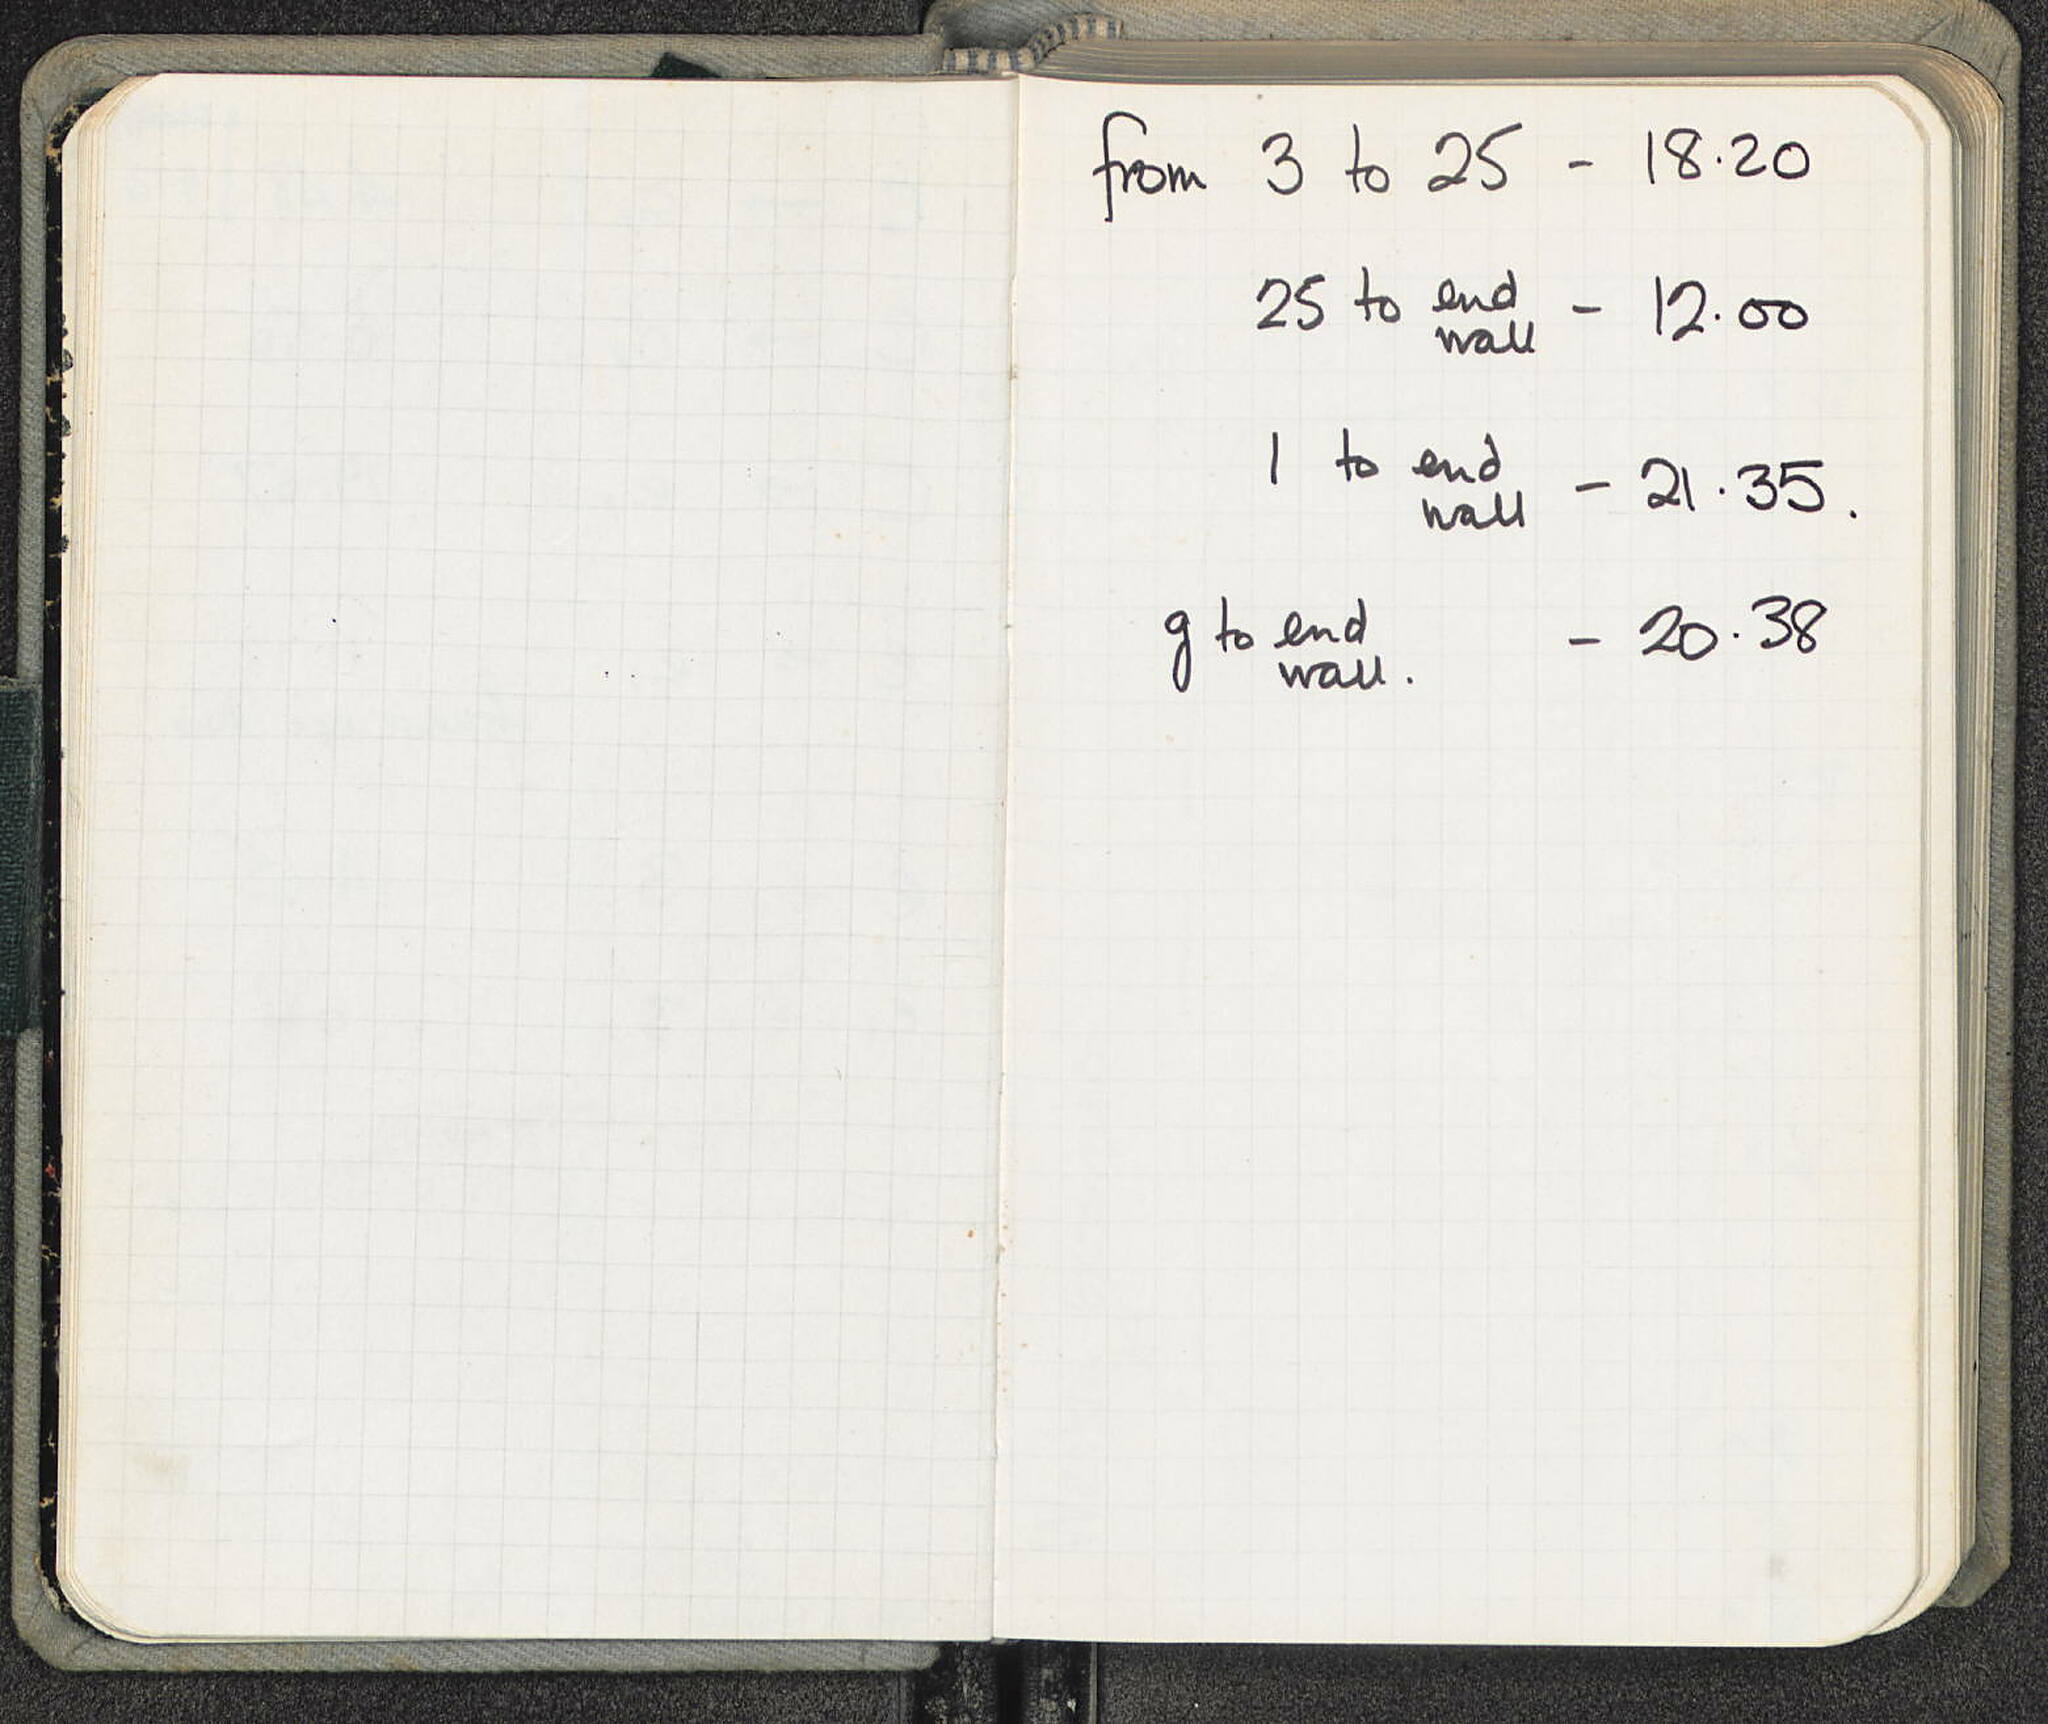 from 3 to 25 - 18.20
25 to end - 12.00
wall
1 to end
wall - 21.35.
g to end - 20.38
wall.